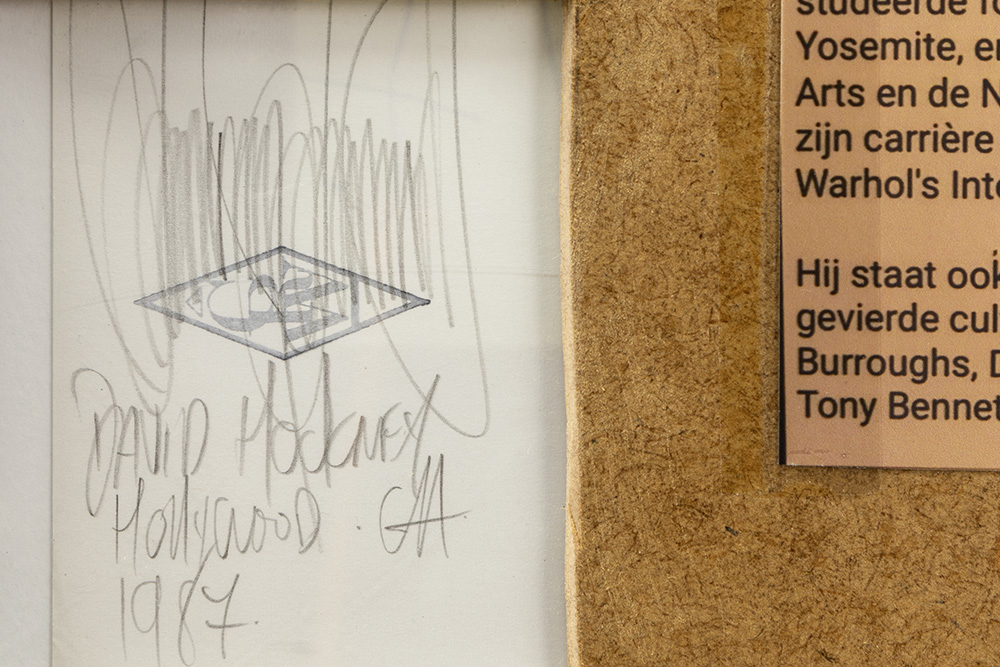 DAVID HOCKNEY
HollywooD . CA.
1987.
studeerde
Yosemite, en
Arts en de N
zijn carrière
Warhol's Inte
Hij staat ook
gevierde cul
Burroughs, D
Tony Bennet